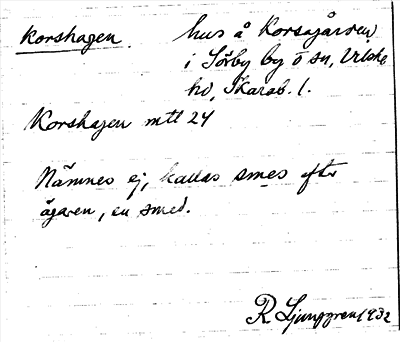 Korshagen. hus å Korsgården
i Sörby by o sn, Vilske
hd, Skarab. l.
Korshagen mtl 24
Nämnes ej, kallas smes efter
ägaren, en smed.
R Ljunggren 1932